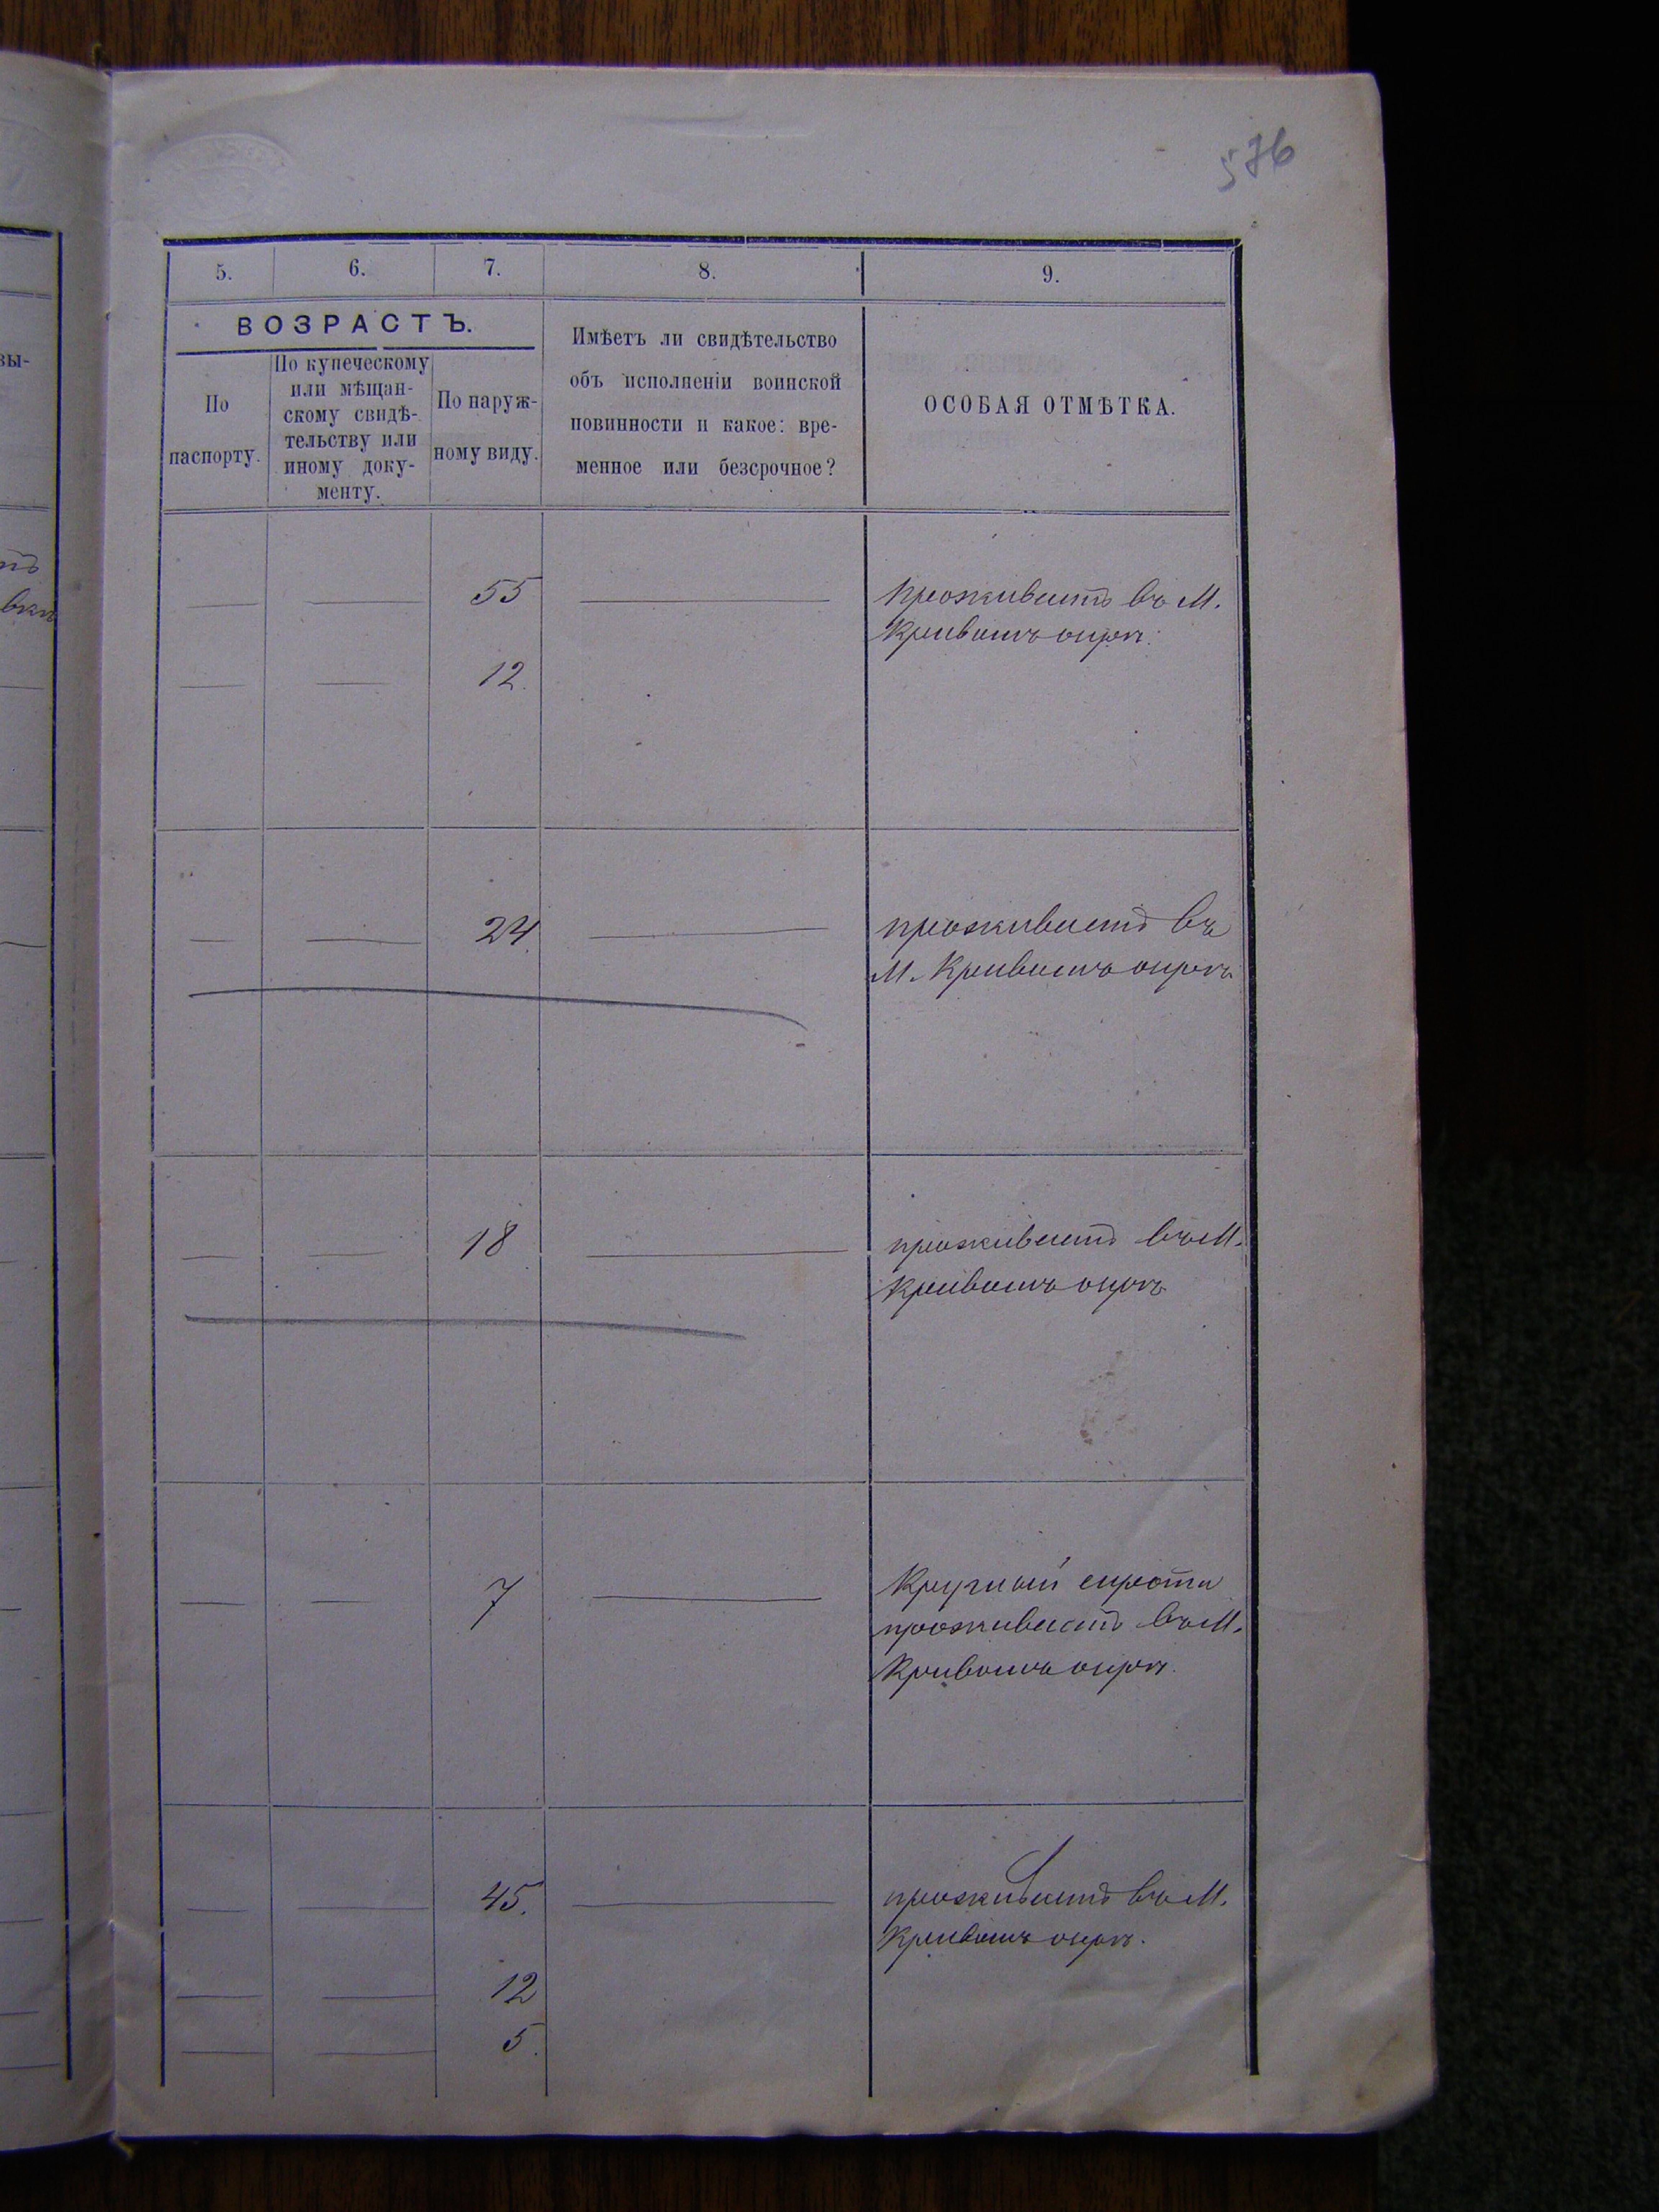 576
5. 6. 7. 8. 9.
ВОЗРАСТЪ.
По
паспорту.
По купеческому
или мѣщан-
скому свидѣ-
тельству или
иному доку-
менту.
По наруж-
ному виду.
Имѣетъ ли свидѣтельство
объ исполненіи воинской
повинности и какое: вре-
менное или безсрочное?
ОСОБАЯ ОТМѢТКА.
вы-
— — 55 — проживаетъ въ М.
Кривомъ озерѣ.
— — 12.
— — 24 — проживаетъ въ
М. Кривомъ озерѣ
— 18 — проживаетъ въ М.
Кривомъ озерѣ
— — 7 — Круглый сирота
проживаетъ въ М.
Кривомъ озерѣ.
— — 45. — проживаетъ въ М.
Кривомъ озерѣ.
— — 12
— — 5.